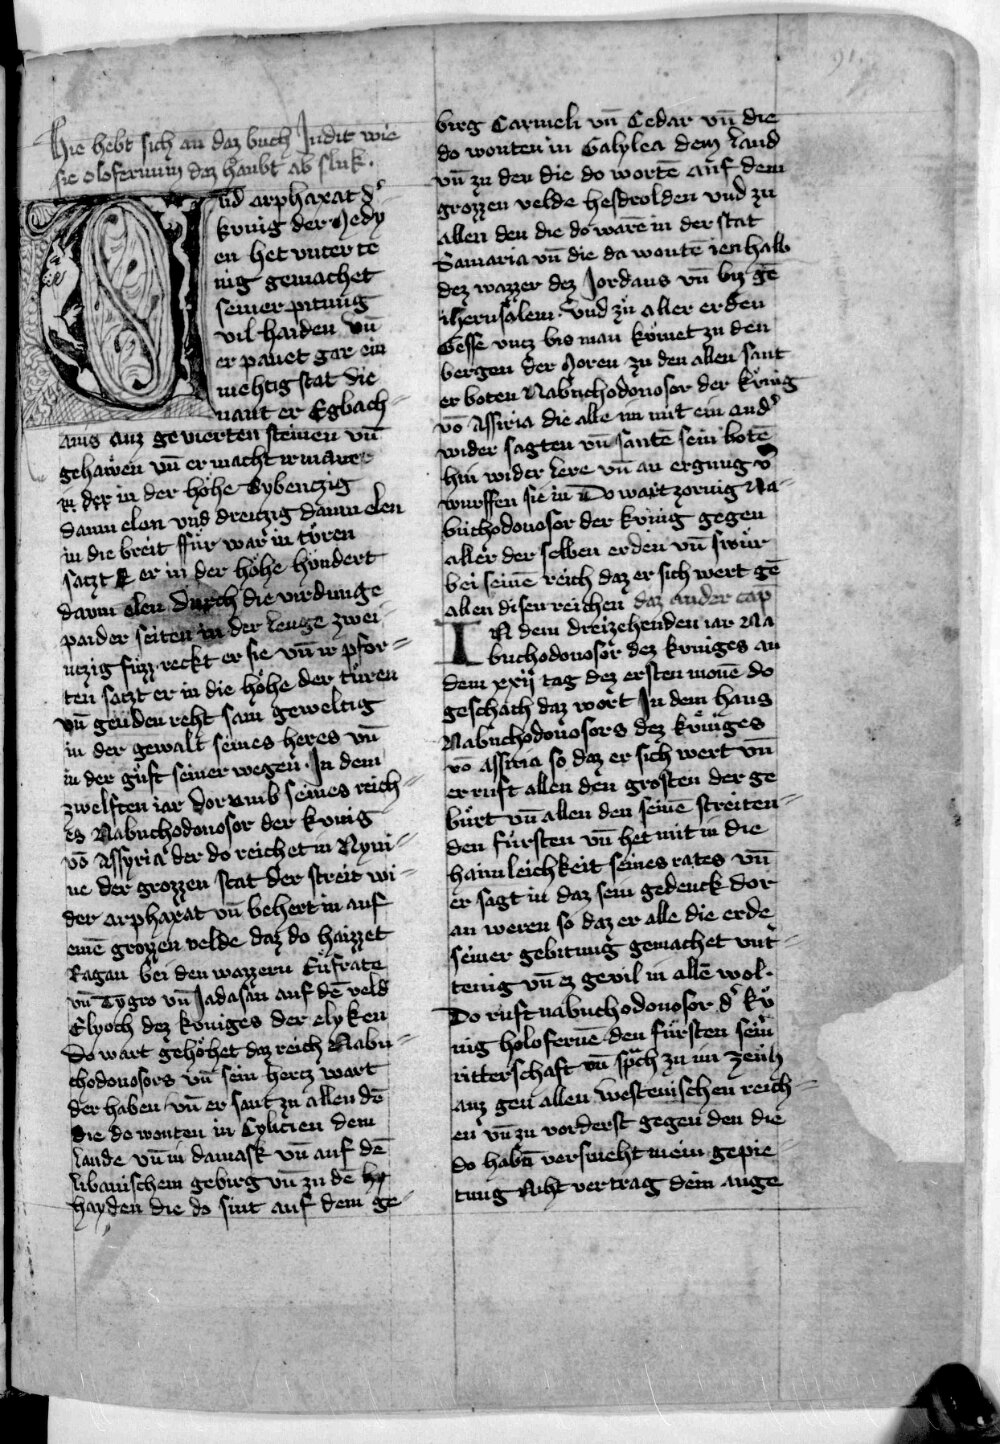 91.
Hie hebt sich an daz buch Judit wie
sie olofernum daz haubt ab sluk.
Vnd arphaxat dʾ
kunig der Medy
en het vnter te
nig gemachet
seiner pitung
vil haiden vn̄
er pauet gar ein
mehtig stat die
nant er Egbach-
anis auz gevierten steinen vn̄
gehawen vn̄ er macht ir mauer
in der höhe Sybenczig
daum elon vnd dreiczig daum elen
in die breit ffür war in türen
saczt er in der höhe hundert
daum elen Durch die virdunge
paider seiten in der lenge zwei-
nczig füzz reckt er sie vn̄ ir pfor-
ten saczt er in die höhe der türen
vn̄ geuden reht sam geweltig
in der gewalt seines heres vn̄
in der guft seiner wegen. In dem
zwelften iar dor umb seines reich-
es Nabuchodonosor der kunig
vō Assyria der do reichet in Nyni-
ue der grozzen stat der streit wi-
der arphaxat vn̄ behert in auf
einē grozzen velde daz do haizzet
Ragau bei den wazzern Eufrate
vn̄ Tygro vn̄ Jadasan auf dē veld
Elyoch dez kuniges der elyken
Do wart gehöhet daz reich Nabu-
chodonosors vn̄ sein hercz wart
der haben vn̄ er sant zu allen dē
die do wonten in Cylicien dem
lande vn̄ in damask vn̄ auf dē
libanischem gebirg vn̄ zu dē
hayden die do sint auf dem ge-
birg Carmeli vn̄ Cedar vn̄ die
do wonten in Galylea dem land
vn̄ zu den die do wortē auf dem
grozzen velde hesdrolden vnd zu
allen den die do warē in der stat
Samaria vn̄ die da wontē ienhalb
dez wazzer dez Jordans vn̄ biz gē
iherusalem. vnd zu aller erden
Gesse vncz bis man kümet zu den
bergen der Moren zu den allen sant
er boten Nabuchodonosor der kunig
vō Assiria die alle im mit ein andʾ
wider sagten vn̄ santē sein botē
hin wider lere vn̄ an ergnug vʾ
wurffen sie in Do wart zornig Na-
buchodonosor der kunig gegen
aller der selben erden vn̄ swur
bei seinē reich daz er sich wert gē
allen disen reichen daz ander cap
IN dem dreizehenden iar Na
buchodonosor dez kuniges an
dem xxij tag dez ersten monē do
geschach daz wort In dem haus
Nabuchodonosors dez kuniges
vō assiria so daz er sich wert vn̄
er ruft allen den grosten der ge
burt vn̄ allen den seinē streiten-
den fürsten vn̄ het mit in die
haimleichkeit seines rates vn̄
er sagt in daz sein gedenck dor
an weren so daz er alle die erde
seiner gebitung gemachet vnt-
tenig vn̄ ez gevil in allē wol.
Do ruft nabuchodonosor dʾ ku
nig holofernē den fürsten sein̄
ritterschaft vn̄ sprach zu im zeuh
auz gen allen westenischen reich-
en vn̄ zu vorderst gegen den die
do habn̄ versmeht mein gepie-
tung Niht vertrag dein auge